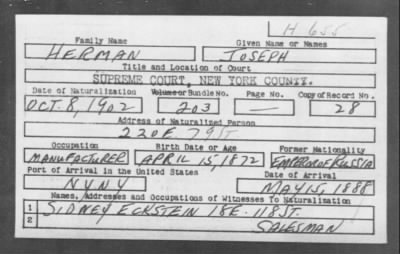 H 655
Family Name Given Name or Names
HERMAN JOSEPH
Title and Location of Court
SUPREME COURT, NEW YORK COUNTY.
Date of Naturalization Volume or Bundle No. Page No. Copy of Record No.
OCT. 8, 1902 203 — 28
Address of Naturalized Person
220 E 79 ST
Occupation Birth Date or Age Former Nationality
MANUFACTURER APRIL 15, 1872 EMPEROR OF RUSSIA
Port of Arrival in the United States Date of Arrival
N Y N Y MAY 15, 1888
Names, Addresses and Occupations of Witnesses To Naturalization
1 SIDNEY ECKSTEIN 18 E. 118 ST.
2 SALESMAN